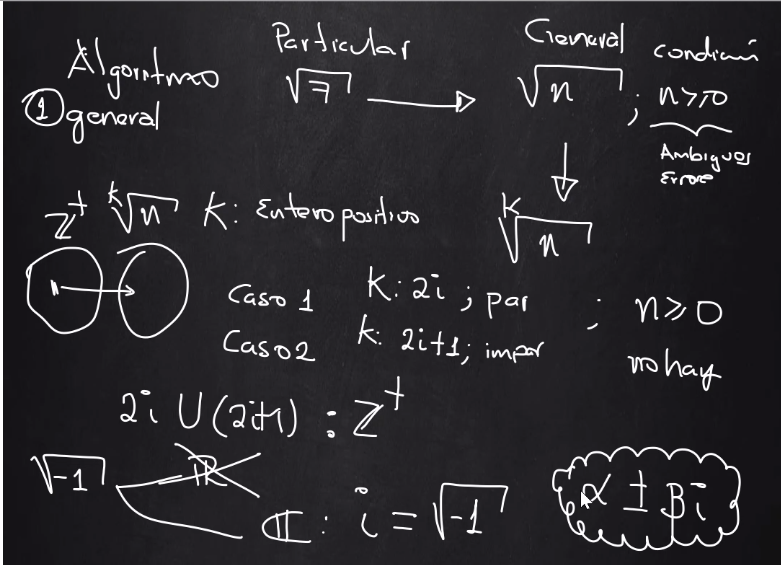 Algoritmo
① general
Particular
√7
General
√n ; n≥0
condición
Ambiguos
Errores
ᵏ√n
Z⁺ ᵏ√n K: Entero positivo
n
Caso 1 K: 2i ; par ; n≥0
Caso 2 k: 2i+1; impar no hay
2i U (2i+1) : Z⁺
√-1 ℝ
ℂ: i = √-1
α ± βi